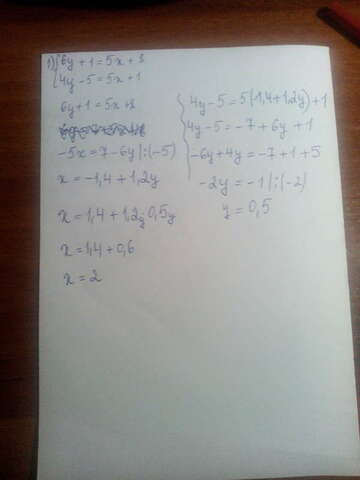 1) { 6y + 1 = 5x + 8
4y - 5 = 5x + 1
6y + 1 = 5x + 8
-5x = 7 - 6y | : (-5)
x = -1,4 + 1,2y
x = 1,4 + 1,2y · 0,5y
x = 1,4 + 0,6
x = 2
{ 4y - 5 = 5(1,4 + 1,2y) + 1
4y - 5 = -7 + 6y + 1
-6y + 4y = -7 + 1 + 5
-2y = -1 | : (-2)
y = 0,5